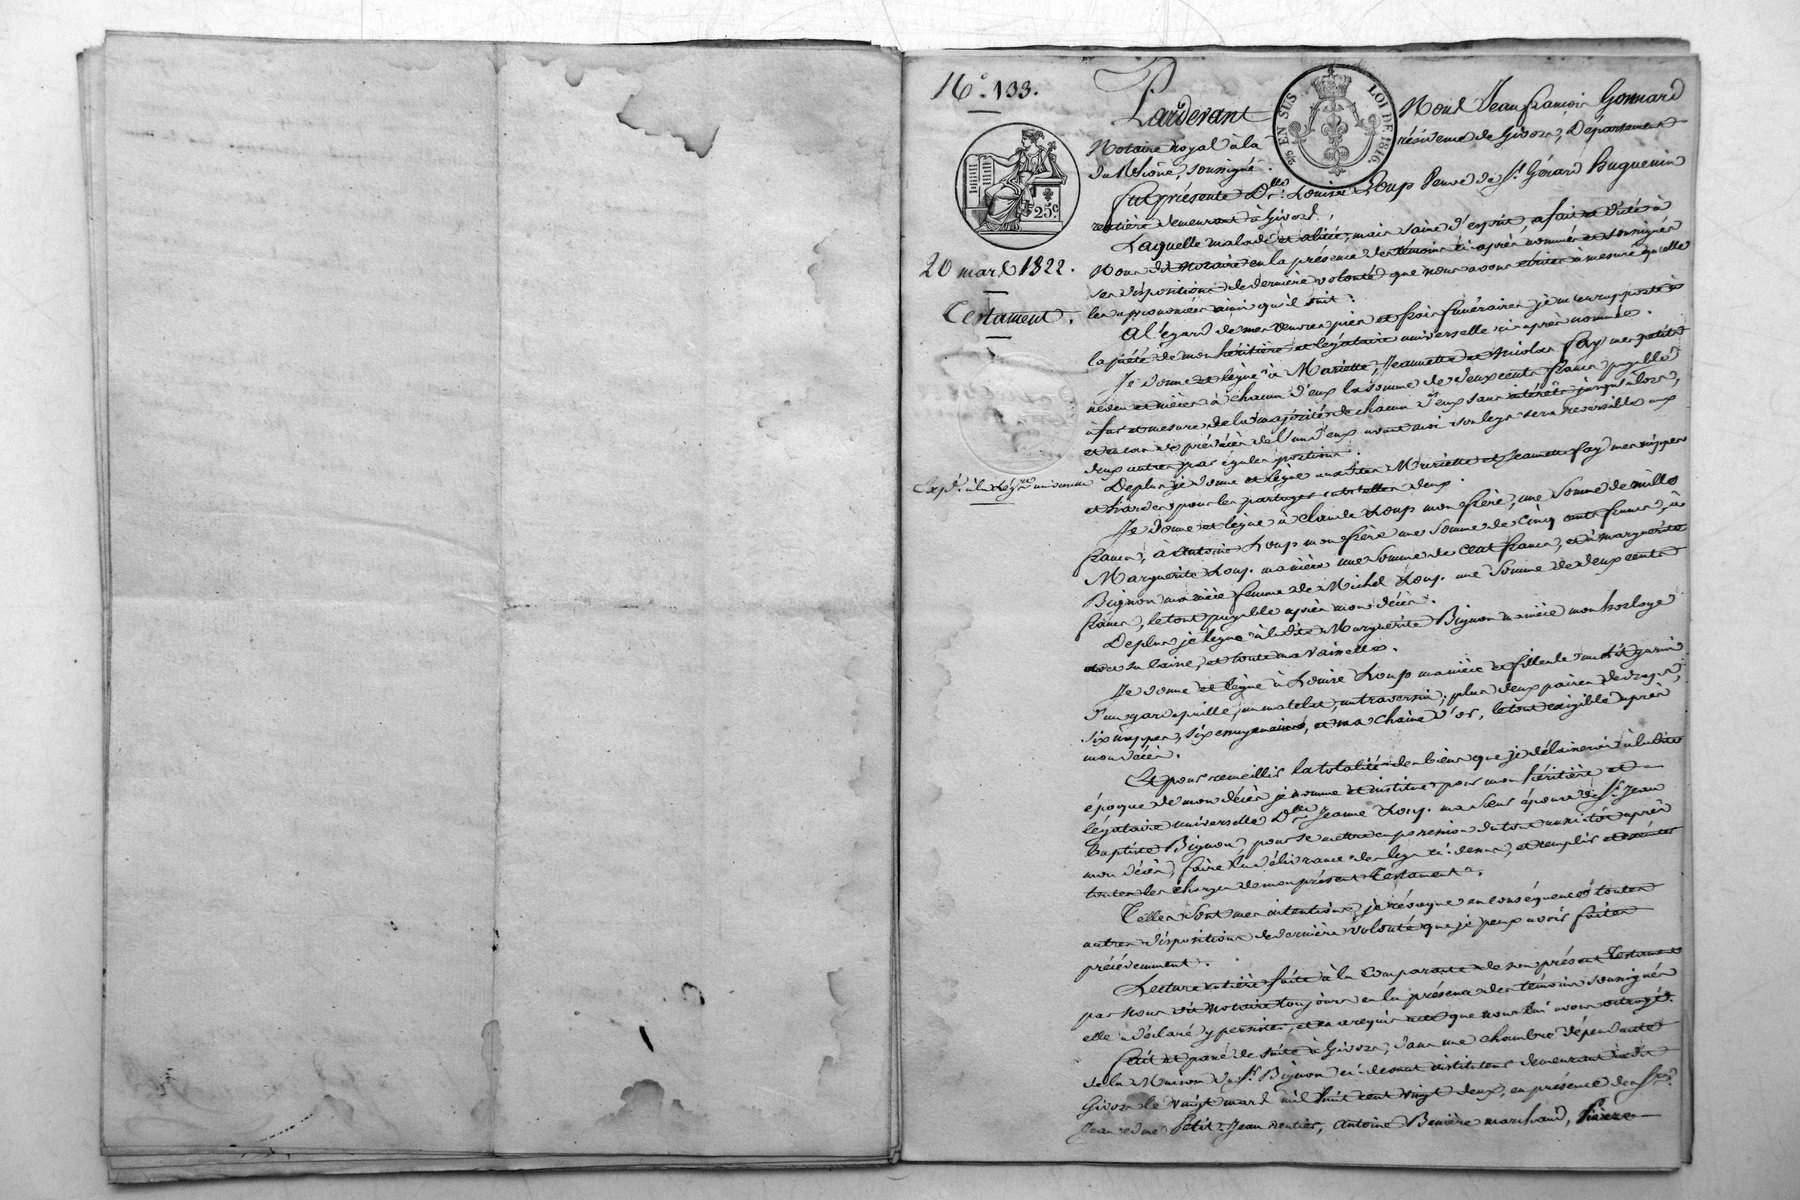 N.° 133.
20 mars 1822.
Testament.
Exp.é à la légre universelle
25.c
EN SUS LOI DE 1816.
Pardevant Nous Jean françois Gonnard
Notaire royal à la résidence de Givors, Département
du Rhône, soussigné.
fut présente Dlle Louise Loup Veuve de Sr Gérard huguenin
rentière demeurant à Givors,
Laquelle malade et alitée, mais saine d'esprit, a fait et dicté à
Nous dit Notaire en la présence des témoins ci-après nommés et soussignés
ses dispositions de dernière volonté que nous avons écrites à mesure qu'elle
les a prononcées ainsi qu'il suit:
A l'égard de mes œuvres pies et frais funéraires je m'en rapporte à
la piété de mon héritière et légataire universelle ci-après nommée.
Je donne et lègue à Mariette, Jeannette et Nicolas Fay mes petits
neveu et nièces à chacun d'eux la somme de deux cents francs payable
à fur et mesure de la majorité de chacun d'eux sans intérêts jusqu'alors,
et en cas de prédécès de l'un d'eux avant moi son legs sera reversible aux
deux autres par égales portions.
Deplus je donne et lègue auxdites Mariette et Jeannette Fay mes nippes
et hardes pour les partager entr'elles deux.
Je donne et lègue à Claude Loup mon frère, une somme de mille
francs, à Antoine Loup mon frère une somme de cinq cents francs, à
Marguerite Loup ma nièce une somme de cent francs, et à Marguerite
Bignon ma nièce femme de Michel Loup une somme de deux cents
francs, le tout payable après mon décès.
Deplus je lègue à ladite Marguerite Bignon ma nièce mon horloge
avec sa caisse, et toute ma vaisselle.
Je donne et lègue à Louise Loup ma nièce et filleule un lit garni
d'un garde-paille, un matelat, un traversin, plus deux paires de draps,
six nappes, six essuyemains, et ma chaine d'or, le tout exigible après
mon décès.
Et pour recueillir la totalité des biens que je délaisserai à ladite
époque de mon décès je nomme et institue pour mon héritière et
légataire universelle Dlle Jeanne Loup ma sœur épouse de Sr Jean
Baptiste Bignon, pour se mettre en possession du tout aussitôt après
mon décès, faire la délivrance des legs ci-dessus, et remplir et exécuter
toutes les charges de mon présent Testament.
Telles sont mes intentions, je révoque en conséquence toutes
autres dispositions de dernière volonté que je peux avoir faites
précédemment.
Lecture entière faite à la Comparante de son présent Testament
par Nous dit Notaire toujours en la présence des témoins soussignés
elle a déclaré y persister, et en a requis acte que nous lui avons octroyé.
Fait et passé de suite à Givors, dans une chambre dépendante
de la Maison du Sr Bignon ci-devant instituteur demeurant audit
Givors le vingt mars mil huit cent vingt deux, en présence des Srs
Jean edme Petit-Jean rentier, Antoine marchand, Pierre